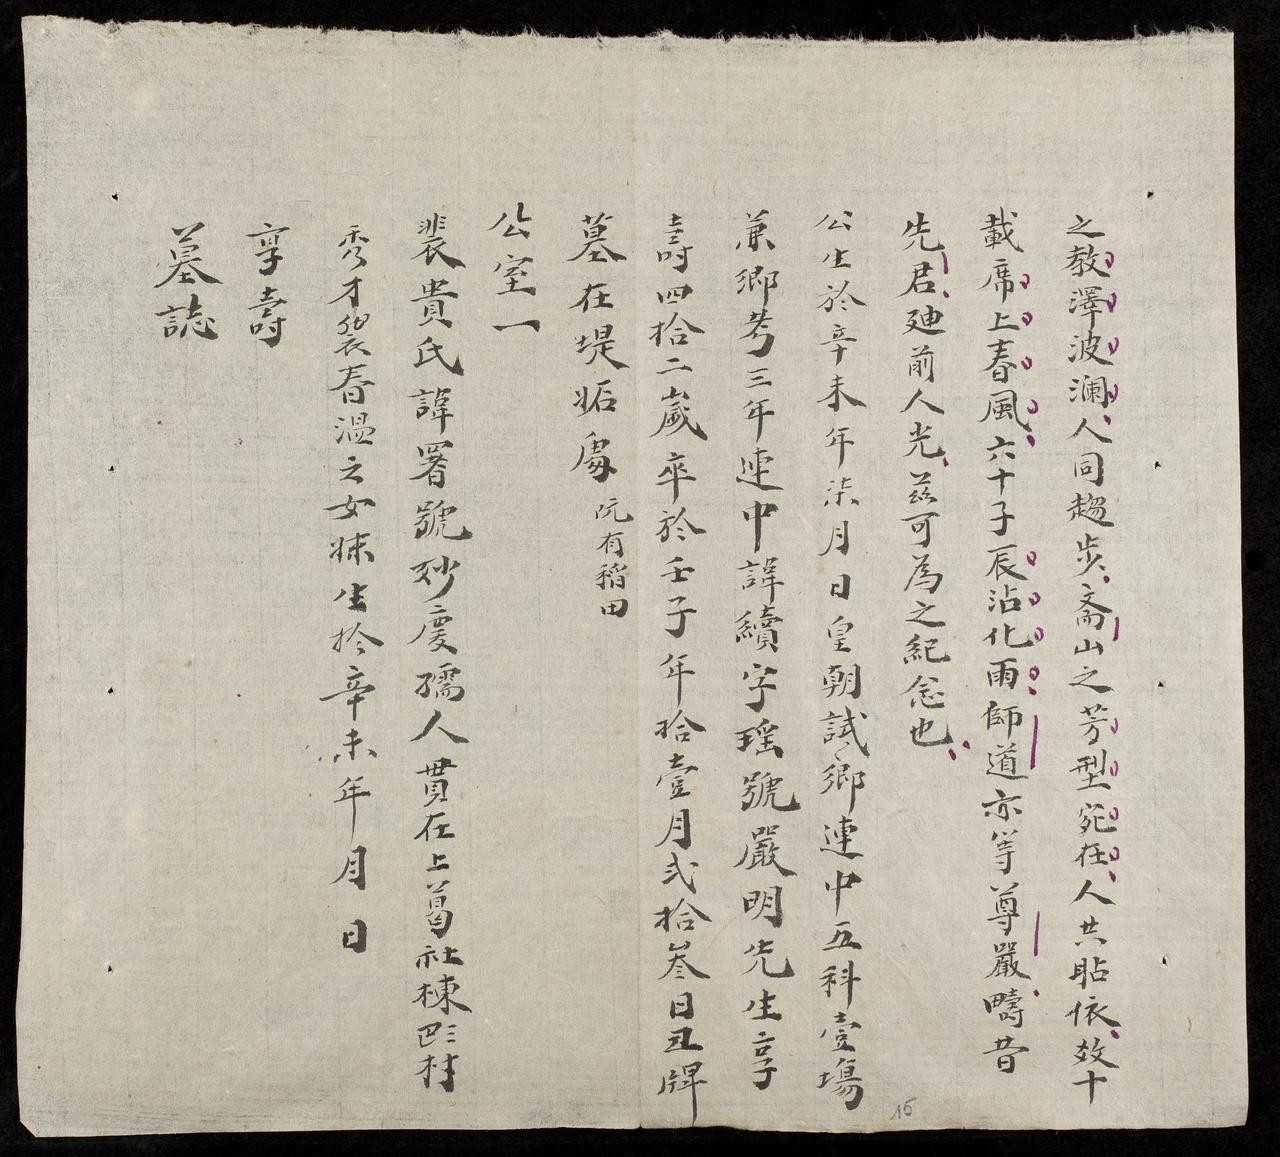 之教澤波瀾人同趨步斋山之芳型宛在人共貼依效十
載席上春風六十子辰沾化雨師道亦等尊嚴疇昔
先君廸前人光茲可為之紀念也
公生於辛未年柒月日皇朝試々鄉連中五科壹塲
兼鄉考三年連中諱續字瑶號嚴明先生享
壽四拾二歲卒於壬子年拾壹月弍拾叁日丑牌
墓在堤垢處阮有稻田
公室一
裴貴氏諱署號妙慶孺人貫在上葛社棟㔧村
秀才裴春溫之女妹生於辛未年月日
享壽
墓誌
16